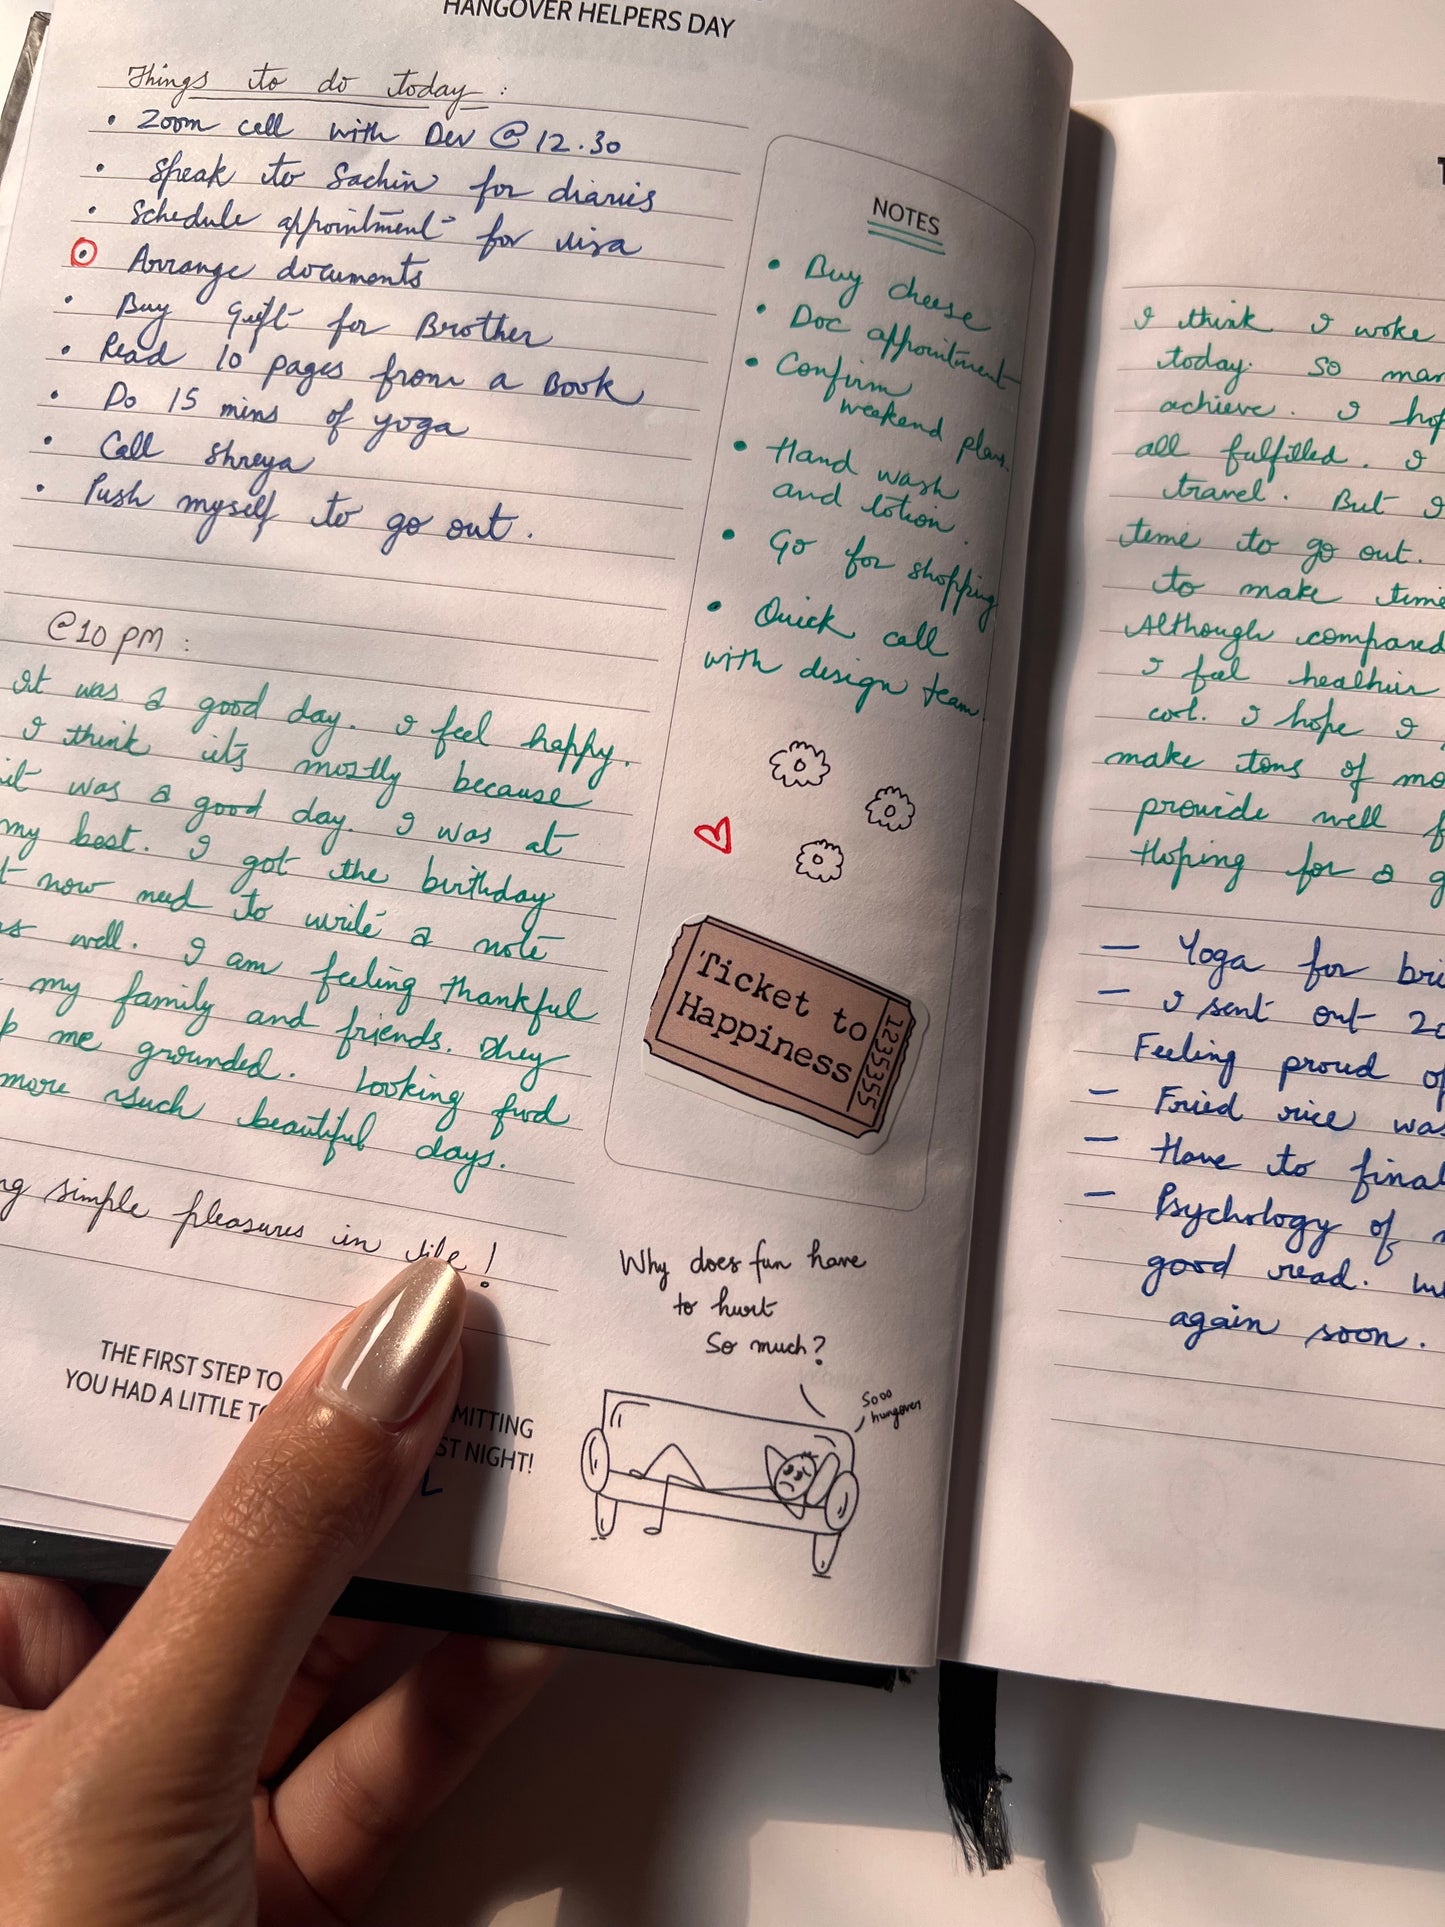 HANGOVER HELPERS DAY
Things to do today :
• Zoom call with Dev @ 12.30
• Speak to Sachin for diaries
• Schedule appointment for visa
• Arrange documents
• Buy gift for Brother
• Read 10 pages from a Book
• Do 15 mins of yoga
• Call Shreya
• Push myself to go out.
@10 PM :
it was a good day. I feel happy.
I think its mostly because
it was a good day. I was at
my best. I got the birthday
now need to write a note
well. I am feeling thankful
my family and friends. They
me grounded. Looking fwd
more such beautiful days.
simple pleasures in life!
THE FIRST STEP TO
YOU HAD A LITTLE
NIGHT!
NOTES
• Buy cheese
• Doc appointment
• Confirm
weekend plans.
• Hand wash
and lotion.
• Go for shopping
• Quick call
with design team.
Ticket to
Happiness
1235355
Why does fun have
to hurt
So much?
Sooo
hungover
I think I woke
today. So
achieve. I
all fulfilled. I
travel. But I
time to go out.
to make time
Although compared
I feel healthier
cool. I hope I
make tons of
provide well
Hoping for a
— Yoga for
— I sent out
Feeling proud of
— Fried rice was
— Have to
— Psychology of
good read.
again soon.